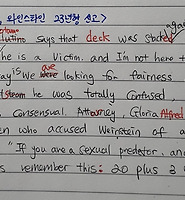 와인스타인 23년형 선고>
says that deck was stacked
he is a victim, and I'm not here t
ay is we are looking for fairness
he was totally confused
consensual. Attorney Gloria Alfred
en who accused Weinstein of
"If you are a sexual predator, and
s remember this: 20 plus 3